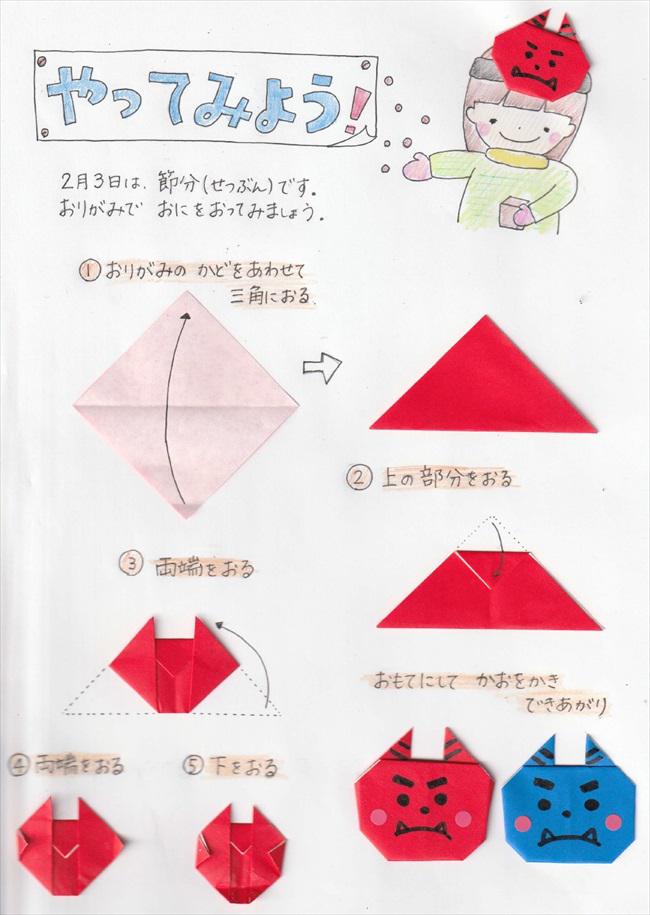 やってみよう!
2月3日は、節分(せつぶん)です。
おりがみで おにをおってみましょう。
① おりがみの かどをあわせて
三角におる。
② 上の部分をおる
③ 両端をおる
④ 両端をおる
⑤ 下をおる
おもてにして かおをかき
できあがり